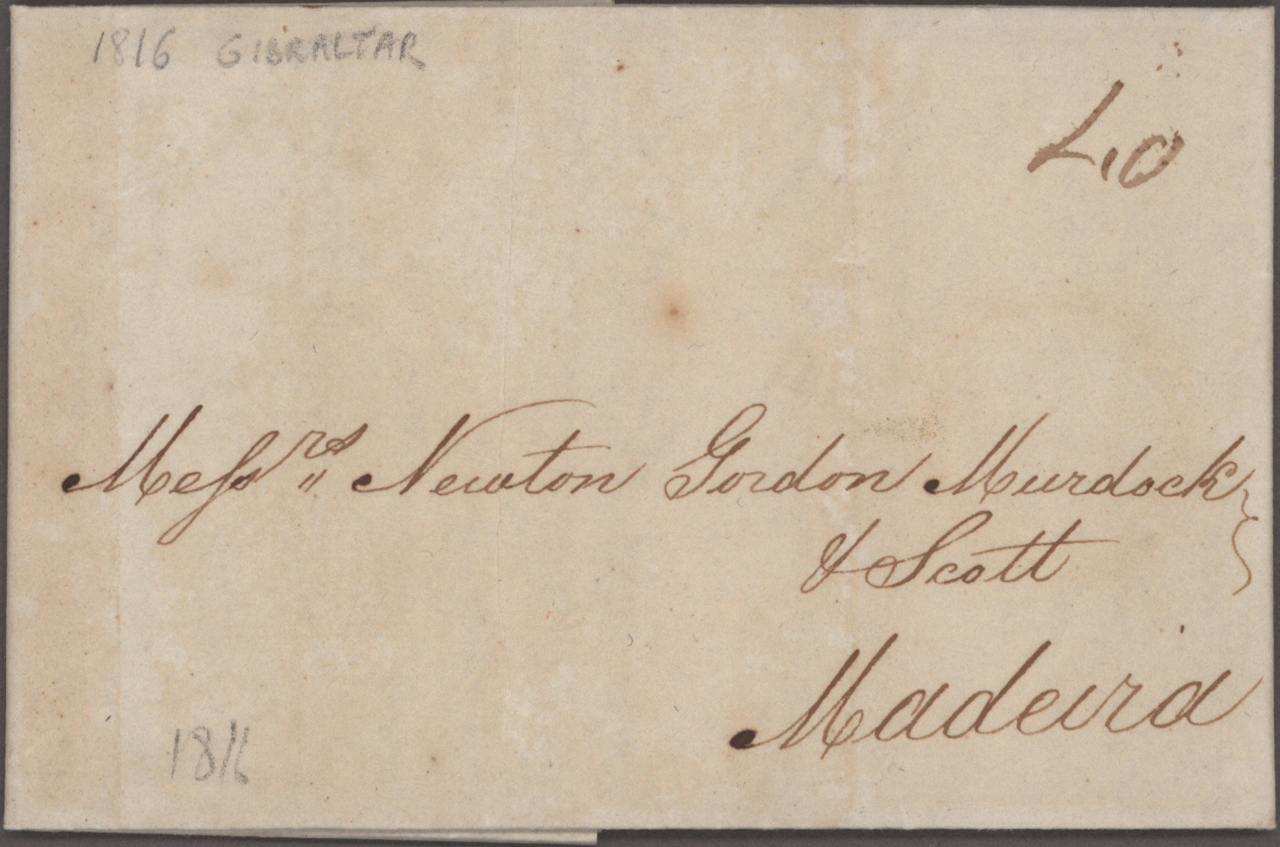 1816 GIBRALTAR
40
Messrs Newton Gordon Murdock
& Scott
Madeira
1816